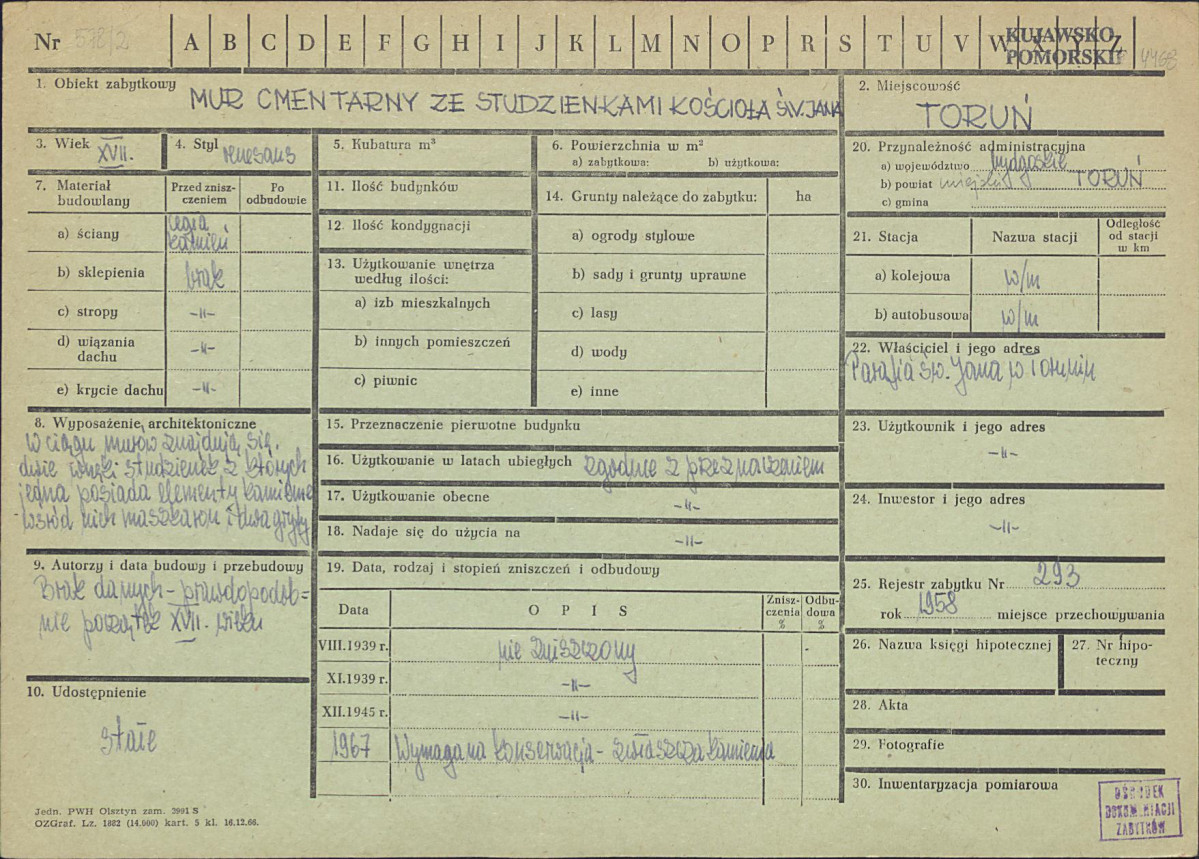 Nr 578/2 A B C D E F G H I J K L M N O P R S T U V W X Y Z
KUJAWSKO
POMORSKI
4468
1. Obiekt zabytkowy
MUR CMENTARNY ZE STUDZIENKAMI KOŚCIOŁA ŚW. JANA
2. Miejscowość
TORUŃ
3. Wiek XVII.
4. Styl renesans
5. Kubatura m³
6. Powierzchnia w m²
a) zabytkowa: b) użytkowa:
20. Przynależność administracyjna
a) województwo bydgoskie
b) powiat miejski TORUŃ
c) gmina
7. Materiał budowlany
Przed znisz-
czeniem
Po
odbudowie
a) ściany cegła, kamień
b) sklepienia brak
c) stropy -„-
d) wiązania
dachu -„-
e) krycie dachu -„-
11. Ilość budynków
12. Ilość kondygnacji
13. Użytkowanie wnętrza
według ilości:
a) izb mieszkalnych
b) innych pomieszczeń
c) piwnic
14. Grunty należące do zabytku: ha
a) ogrody stylowe
b) sady i grunty uprawne
c) lasy
d) wody
e) inne
21. Stacja Nazwa stacji
Odległość
od stacji
w km
a) kolejowa w/m
b) autobusowa w/m
22. Właściciel i jego adres
Parafia św. Jana w Toruniu
8. Wyposażenie architektoniczne
W ciągu murów znajdują się
dwie wnęki studzienek z których
jedna posiada elementy kamienne
wśród nich maszkaron i dwa gryfy
15. Przeznaczenie pierwotne budynku
16. Użytkowanie w latach ubiegłych zgodnie z przeznaczeniem
17. Użytkowanie obecne -„-
18. Nadaje się do użycia na -„-
23. Użytkownik i jego adres
-„-
24. Inwestor i jego adres
-„-
9. Autorzy i data budowy i przebudowy
Brak danych - prawdopodob=
nie początek XVII. wieku
10. Udostępnienie
stałe
19. Data, rodzaj i stopień zniszczeń i odbudowy
Data OPIS
Znisz-
czenia
%
Odbu-
dowa
%
VIII.1939 r. nie zniszczony -
XI.1939 r. -„-
XII.1945 r. -„-
1967 Wymagana konserwacja - zwłaszcza kamienia
25. Rejestr zabytku Nr 293
rok 1958 miejsce przechowywania
26. Nazwa księgi hipotecznej
27. Nr hipo-
teczny
28. Akta
29. Fotografie
30. Inwentaryzacja pomiarowa
OŚRODEK
DOKUMENTACJI
ZABYTKÓW
Jedn. PWH Olsztyn zam. 3991 S
OZGraf. Lz. 1882 (14.000) kart. 5 kl. 16.12.66.